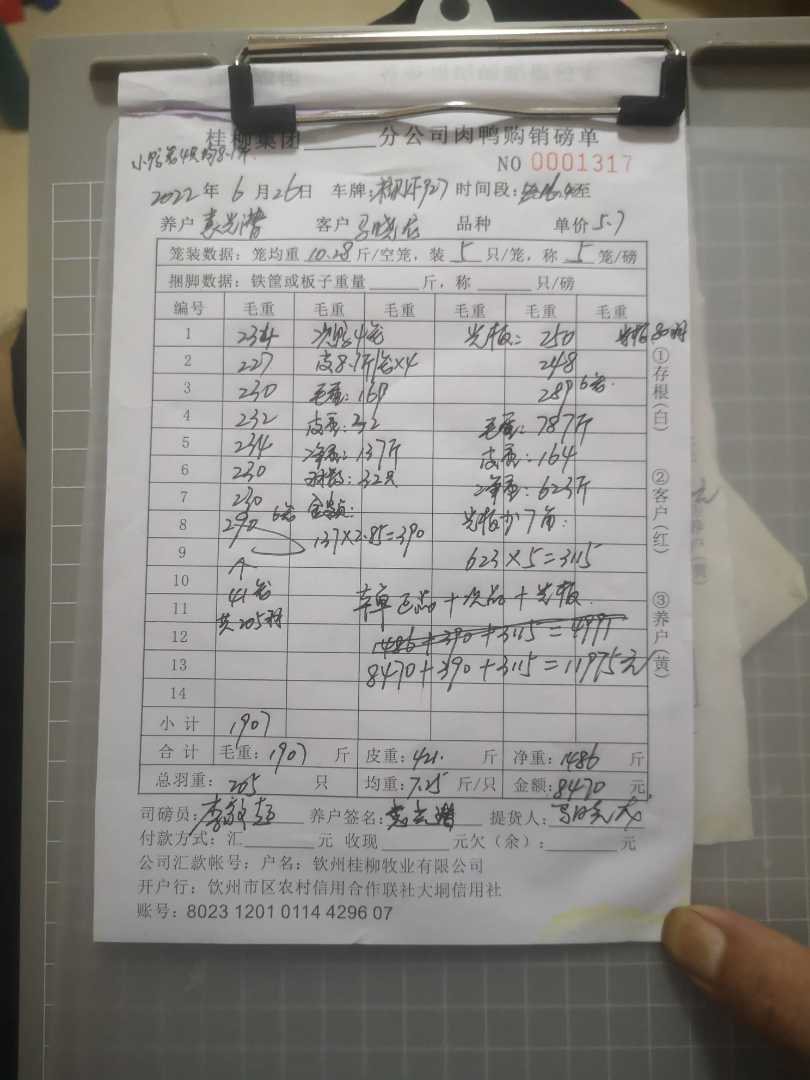 桂柳集团______分公司肉鸭购销磅单
NO 0001317
2022年 6月26日 车牌: 927 时间段: 至
养户 客户 品种 单价 5.7
笼装数据: 笼均重 10.28 斤/空笼, 装 5 只/笼, 称 5 笼/磅
捆脚数据: 铁筐或板子重量______斤, 称______只/磅
编号 毛重 毛重 毛重 毛重 毛重 毛重
1 234 4笼 光板: 250
2 227 皮8.1斤/笼×4 248
3 230 毛重: 169 289 6笼
4 232 皮重: 32 毛重: 787斤
5 234 净重: 137斤 皮重: 164
6 230 羽数: 32只 净重: 623斤
7 230 金额: 光板少7角:
8 290 6笼 137×2.85=390
9 623×5=3115
10 41笼
11 共205羽 正品+次品+光板
12 1486+390+3115=4991
13 8470+390+3115=11975元
14
小计 1907
合计 毛重: 1907 斤 皮重: 421. 斤 净重: 1486 斤
总羽重: 205 只 均重: 7.25 斤/只 金额: 8470 元
司磅员: 养户签名: 提货人:
付款方式: 汇______元 收现______元欠(余):______元
公司汇款帐号: 户名: 钦州桂柳牧业有限公司
开户行: 钦州市区农村信用合作联社大垌信用社
账号: 8023 1201 0114 4296 07
①存根(白) ②客户(红) ③养户(黄)